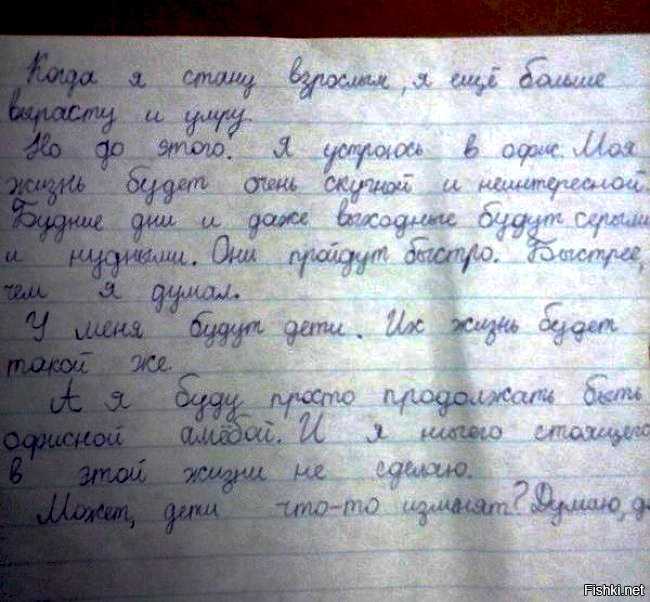 Когда я стану взрослым, я ещё больше
вырасту и умру.
Но до этого. Я устроюсь в офис. Моя
жизнь будет очень скучной и неинтересной.
Будние дни и даже выходные будут серыми
и нудными. Они пройдут быстро. Быстрее,
чем я думал.
У меня будут дети. Их жизнь будет
такой же.
А я буду просто продолжать быть
офисной амёбой. И я ничего стоящего
в этой жизни не сделаю.
Может, дети что-то изменят? Думаю, да
Fishki.net